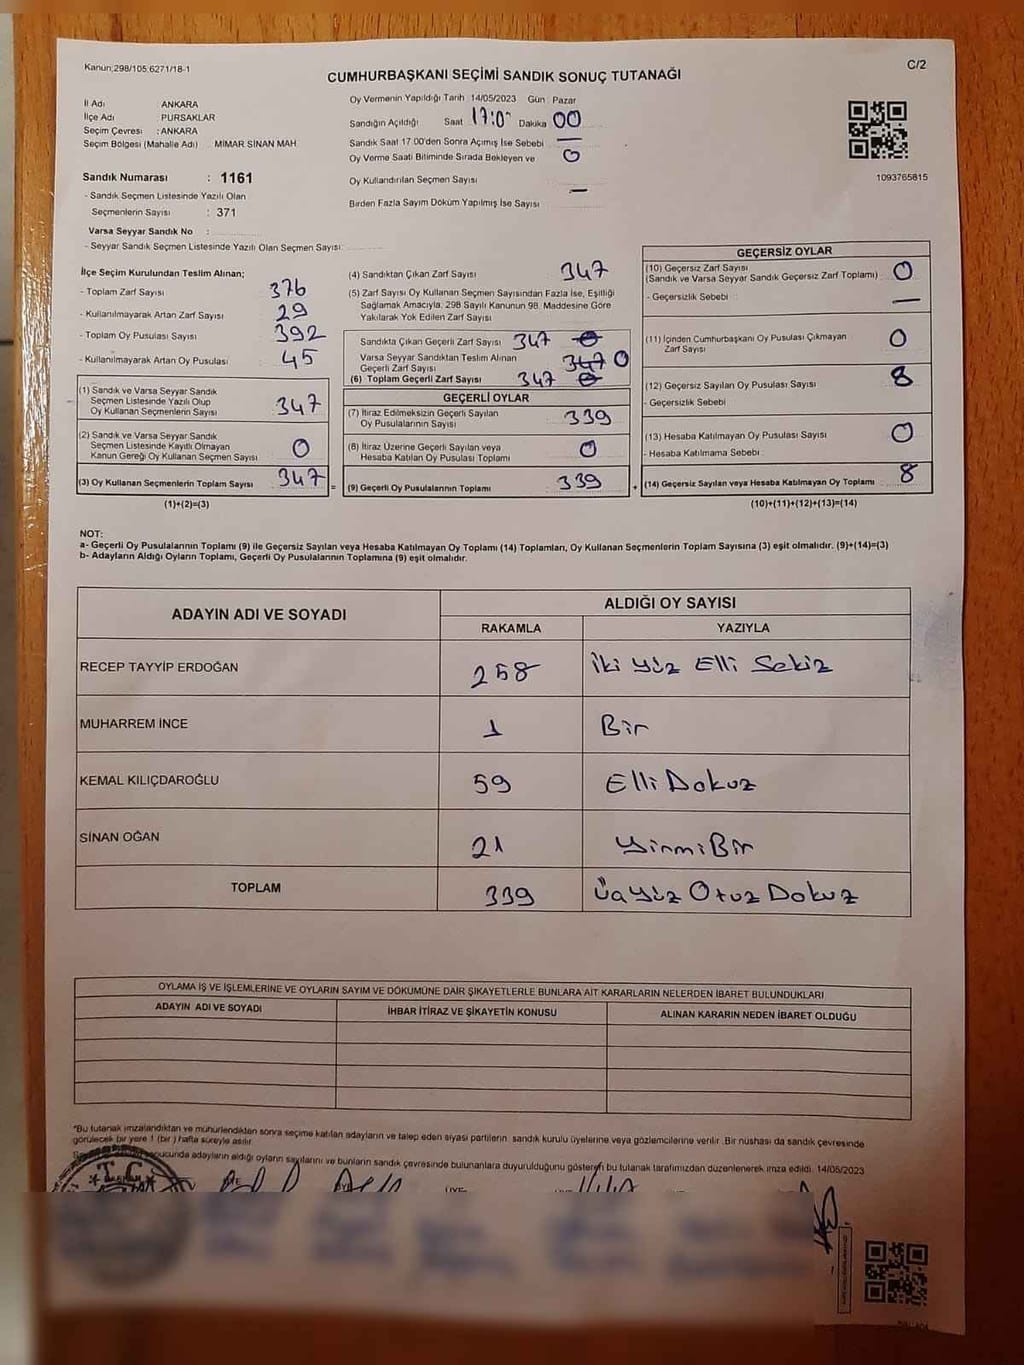 Kanun:298/105.6271/18-1
C/2
CUMHURBAŞKANI SEÇİMİ SANDIK SONUÇ TUTANAĞI
İl Adı : ANKARA
İlçe Adı : PURSAKLAR
Seçim Çevresi : ANKARA
Seçim Bölgesi (Mahalle Adı) MİMAR SİNAN MAH
Oy Vermenin Yapıldığı Tarih 14/05/2023 Gün : Pazar
Sandığın Açıldığı Saat 17:0 Dakika 00
Sandık Saat 17.00'den Sonra Açımış İse Sebebi —
Oy Verme Saati Bitiminde Sırada Bekleyen ve 0
Oy Kullandırılan Seçmen Sayısı
Birden Fazla Sayım Döküm Yapılmış İse Sayısı —
1093765815
Sandık Numarası : 1161
- Sandık Seçmen Listesinde Yazılı Olan
Seçmenlerin Sayısı : 371
Varsa Seyyar Sandık No :
- Seyyar Sandık Seçmen Listesinde Yazılı Olan Seçmen Sayısı:
İlçe Seçim Kurulundan Teslim Alınan;
- Toplam Zarf Sayısı 376
- Kullanılmayarak Artan Zarf Sayısı 29
- Toplam Oy Pusulası Sayısı 392
- Kullanılmayarak Artan Oy Pusulası 45
(1) Sandık ve Varsa Seyyar Sandık
Seçmen Listesinde Yazılı Olup
Oy Kullanan Seçmenlerin Sayısı 347
(2) Sandık ve Varsa Seyyar Sandık
Seçmen Listesinde Kayıtlı Olmayan
Kanun Gereği Oy Kullanan Seçmen Sayısı 0
(3) Oy Kullanan Seçmenlerin Toplam Sayısı 347 =
(1)+(2)=(3)
(4) Sandıktan Çıkan Zarf Sayısı 347
(5) Zarf Sayısı Oy Kullanan Seçmen Sayısından Fazla İse, Eşitliği
Sağlamak Amacıyla, 298 Sayılı Kanunun 98. Maddesine Göre
Yakılarak Yok Edilen Zarf Sayısı
Sandıkta Çıkan Geçerli Zarf Sayısı 347 0
Varsa Seyyar Sandıktan Teslim Alınan
Geçerli Zarf Sayısı 347 0
(6) Toplam Geçerli Zarf Sayısı 347 0
GEÇERLİ OYLAR
(7) İtiraz Edilmeksizin Geçerli Sayılan
Oy Pusulalarının Sayısı 339
(8) İtiraz Üzerine Geçerli Sayılan veya
Hesaba Katılan Oy Pusulası Toplamı 0
(9) Geçerli Oy Pusulalarının Toplamı 339 +
GEÇERSİZ OYLAR
(10) Geçersiz Zarf Sayısı
(Sandık ve Varsa Seyyar Sandık Geçersiz Zarf Toplamı) 0
- Geçersizlik Sebebi : —
(11) İçinden Cumhurbaşkanı Oy Pusulası Çıkmayan
Zarf Sayısı 0
(12) Geçersiz Sayılan Oy Pusulası Sayısı 8
- Geçersizlik Sebebi
(13) Hesaba Katılmayan Oy Pusulası Sayısı 0
- Hesaba Katılmama Sebebi :
(14) Geçersiz Sayılan veya Hesaba Katılmayan Oy Toplamı 8
(10)+(11)+(12)+(13)=(14)
NOT:
a- Geçerli Oy Pusulalarının Toplamı (9) ile Geçersiz Sayılan veya Hesaba Katılmayan Oy Toplamı (14) Toplamları, Oy Kullanan Seçmenlerin Toplam Sayısına (3) eşit olmalıdır. (9)+(14)=(3)
b- Adayların Aldığı Oyların Toplamı, Geçerli Oy Pusulalarının Toplamına (9) eşit olmalıdır.
ADAYIN ADI VE SOYADI ALDIĞI OY SAYISI
RAKAMLA YAZIYLA
RECEP TAYYİP ERDOĞAN 258 İki Yüz Elli Sekiz
MUHARREM İNCE 1 Bir
KEMAL KILIÇDAROĞLU 59 Elli Dokuz
SİNAN OĞAN 21 Yirmi Bir
TOPLAM 339 Üçyüz Otuz Dokuz
OYLAMA İŞ VE İŞLEMLERİNE VE OYLARIN SAYIM VE DÖKÜMÜNE DAİR ŞİKAYETLERLE BUNLARA AİT KARARLARIN NELERDEN İBARET BULUNDUKLARI
ADAYIN ADI VE SOYADI İHBAR İTİRAZ VE ŞİKAYETİN KONUSU ALINAN KARARIN NEDEN İBARET OLDUĞU
*Bu tutanak imzalandıktan ve mühürlendikten sonra seçime katılan adayların ve talep eden siyasi partilerin, sandık kurulu üyelerine veya gözlemcilerine verilir. Bir nüshası da sandık çevresinde
görülecek bir yere 1 (bir) hafta süreyle asılır.
sonucunda adayların aldığı oyların sayılarını ve bunların sandık çevresinde bulunanlara duyurulduğunu gösteren bu tutanak tarafımızdan düzenlenerek imza edildi. 14/05/2023
T.C.
ÜYE